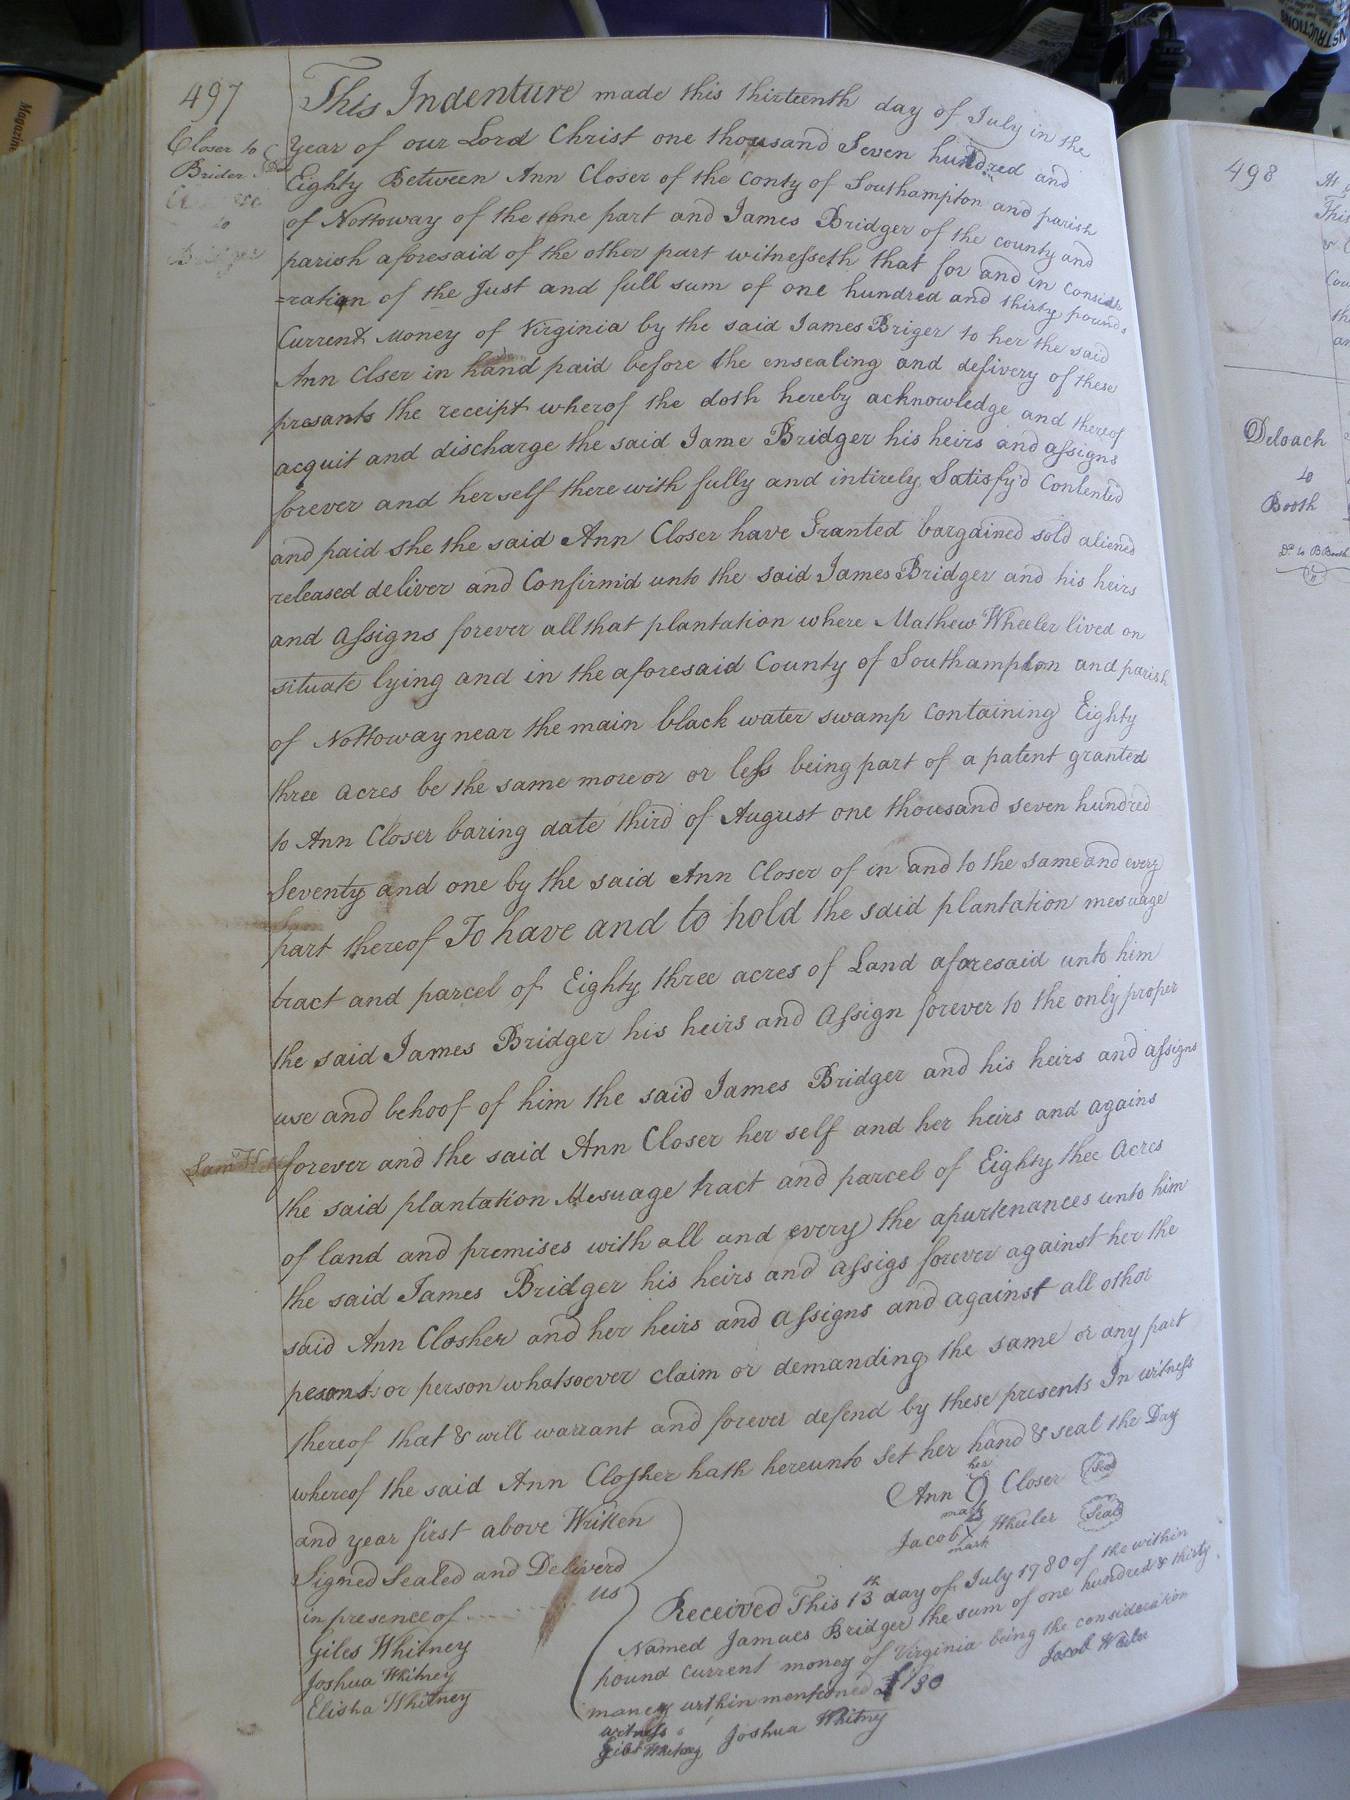 497
Closer to
Brider
Closer
to
Bridger
This Indenture made this thirteenth day of July in the
Year of our Lord Christ one thousand Seven hundred and
Eighty Between Ann Closer of the Conty of Southampton and parish
of Nottoway of the one part and James Bridger of the county and
parish aforesaid of the other part witnesseth that for and in conside
=ration of the Just and full sum of one hundred and thirty pounds
Current Money of Virginia by the said James Briger to her the said
Ann Clser in hand paid before the ensealing and delivery of these
presants the receipt wherof the doth hereby acknowledge and thereof
acquit and discharge the said Jame Bridger his heirs and assigns
forever and her self there with fully and intirely Satisfy'd Contented
and paid she the said Ann Closer have Granted bargained sold aliened
released deliver and Confirm'd unto the said James Bridger and his heirs
and assigns forever all that plantation where Mathew Wheeler lived on
situate lying and in the aforesaid County of Southampton and parish
of Nottoway near the main black water swamp Containing Eighty
three acres be the same more or or less being part of a patent granted
to Ann Closer baring date third of August one thousand seven hundred
Seventy and one by the said Ann Closer of in and to the same and every
part thereof To have and to hold the said plantation mesuage
tract and parcel of Eighty three acres of Land aforesaid unto him
the said James Bridger his heirs and Assign forever to the only proper
use and behoof of him the said James Bridger and his heirs and assigns
forever and the said Ann Closer her self and her heirs and agains
the said plantation Mesuage tract and parcel of Eighty thee acres
of land and premises with all and every the apurtenances unto him
the said James Bridger his heirs and assigs forever against her the
said Ann Closher and her heirs and assigns and against all other
pesons or person whatsoever claim or demanding the same or any part
thereof that & will warrant and forever defend by these presents In witness
whereof the said Ann Closher hath hereunto Set her hand & seal the Day
and year first above Written
Signed Sealed and Deliverd
in presence of us
Giles Whitney
Joshua Whitney
Elisha Whitney
her
Ann O Closer Seal
mark
Jacob X Wheeler Seal
mark
Received This 13th day of July 1780 of the within
Named Jamaes Bridger the sum of one hundred & thirty
pound current money of Virginia being the consideration
money within mentioned £130
Jacob Wheeler
witness
Giles Whitney Joshua Whitny
498
This
Deloach
to
Booth